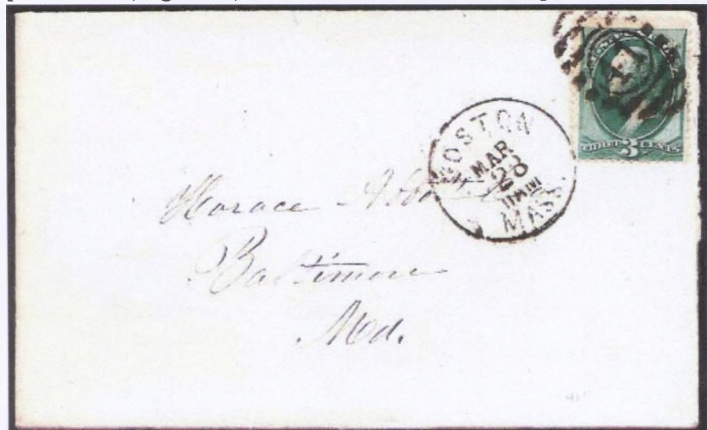 BOSTON
MAR
28
11AM
MASS.
THREE 3 CENTS
Horace
Baltimore
Md.